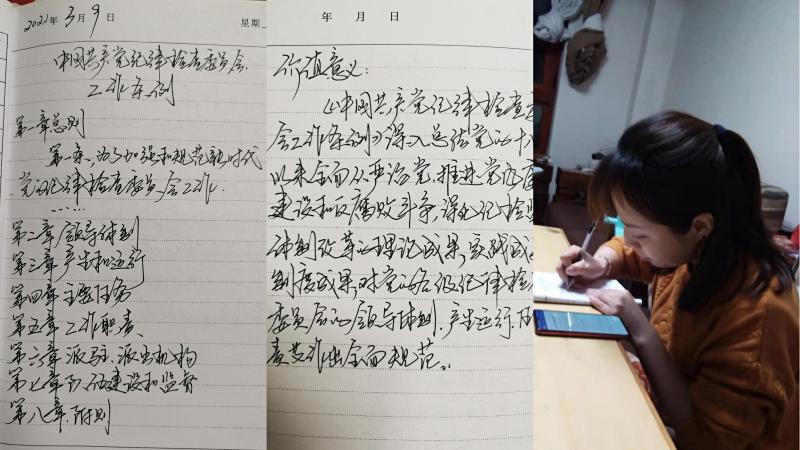 2022年3月9日
星期
中国共产党纪律检查委员会
工作条例
第一章总则
第一条、为了加强和规范新时代
党的纪律检查委员会工作.
……
第二章 领导体制
第三章 产生和运行
第四章 主要任务
第五章 工作职责
第六章 派驻、派出机构
第七章 队伍建设和监督
第八章、附则
年 月 日
价值意义：
《中国共产党纪律检查委
会工作条例》深入总结党的十八
以来全面从严治党、推进党风廉
建设和反腐败斗争、深化纪检监
体制改革的理论成果,实践成
制度成果,对党的各级纪律检
委员会的领导体制、产生运行、
责等作出全面规范。